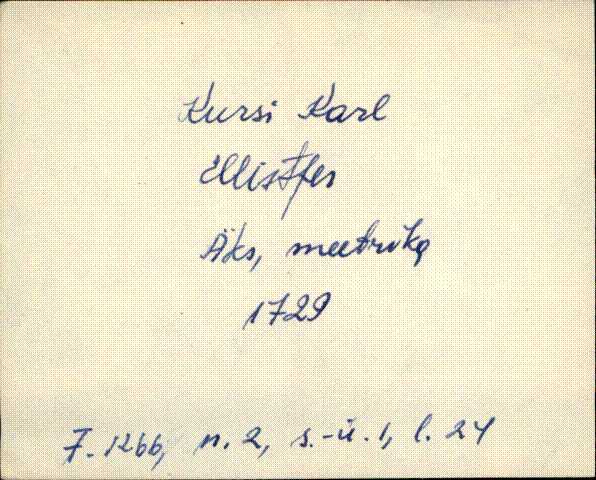 Kursi Karl
Ellistfer
Äks, meetrika
1729
F. 1266, n. 2, s.-ü. 1, l. 24